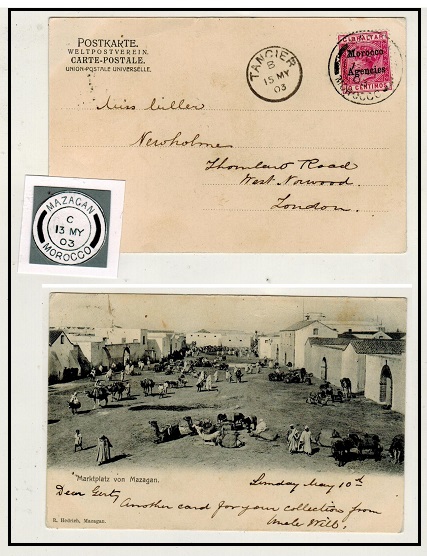 POSTKARTE.
WELTPOSTVEREIN.
CARTE-POSTALE.
UNION POSTALE UNIVERSELLE.
TANGIER
B
15 MY
03
GIBRALTAR
Morocco
Agencies
10 CENTIMOS
MOROCCO
Miss
Newholme
Road
West Norwood.
London.
MAZAGAN
C
13 MY
03
MOROCCO
Marktplatz von Mazagan.
Sunday May 10th
Dear Gerty
Another card for your collection from
Uncle Will.
R. Hedrich, Mazagan.